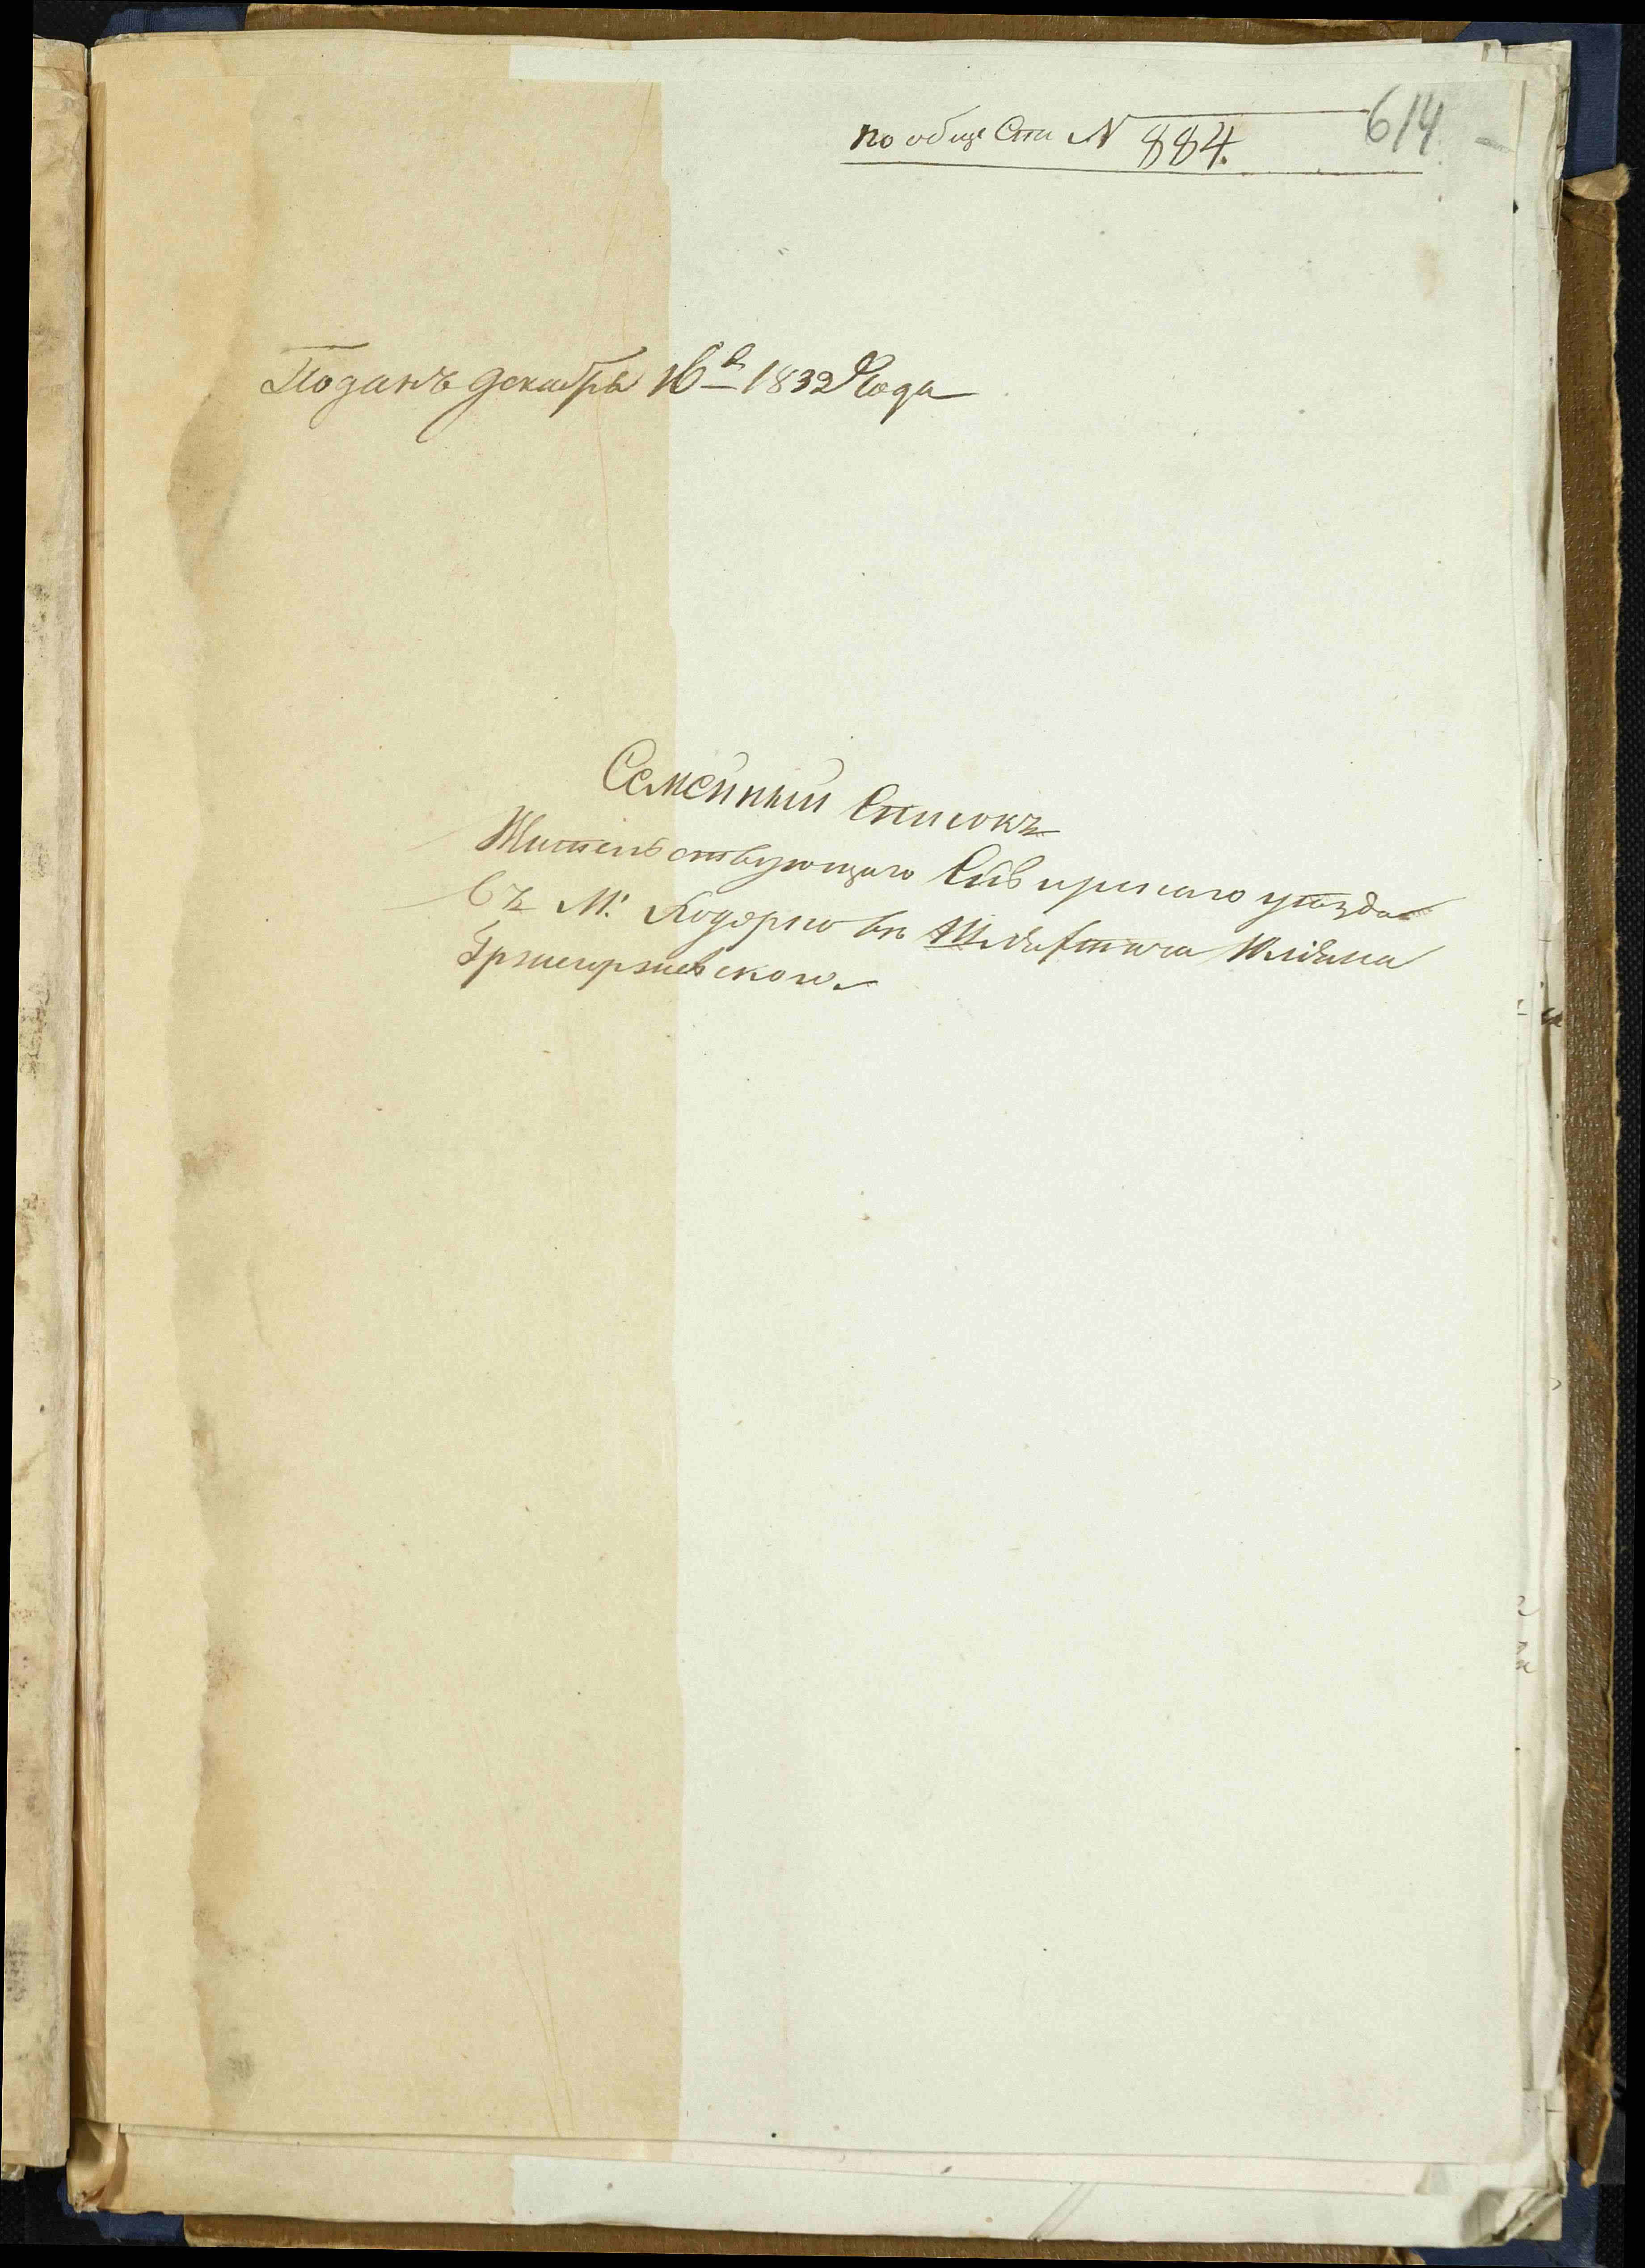 по обще Сти № 884.
614
Поданъ декабря 16го 1832 Года
Семейный Списокъ
Жительствующаго уезда
въ М: Ходоркове Шляхтича Юліана
Гржегоржевского